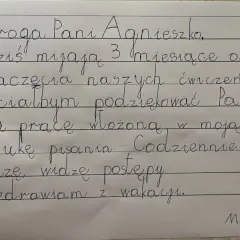 roga Pani Agnieszko,
ziś mijają 3 miesiące o
aczęcia naszych ćwiczeń
ciałbym podziękować Pa
a pracę włożoną w moją
ukę pisania Codziennie
zę, widzę postępy.
zdrawiam z wakacji.
M